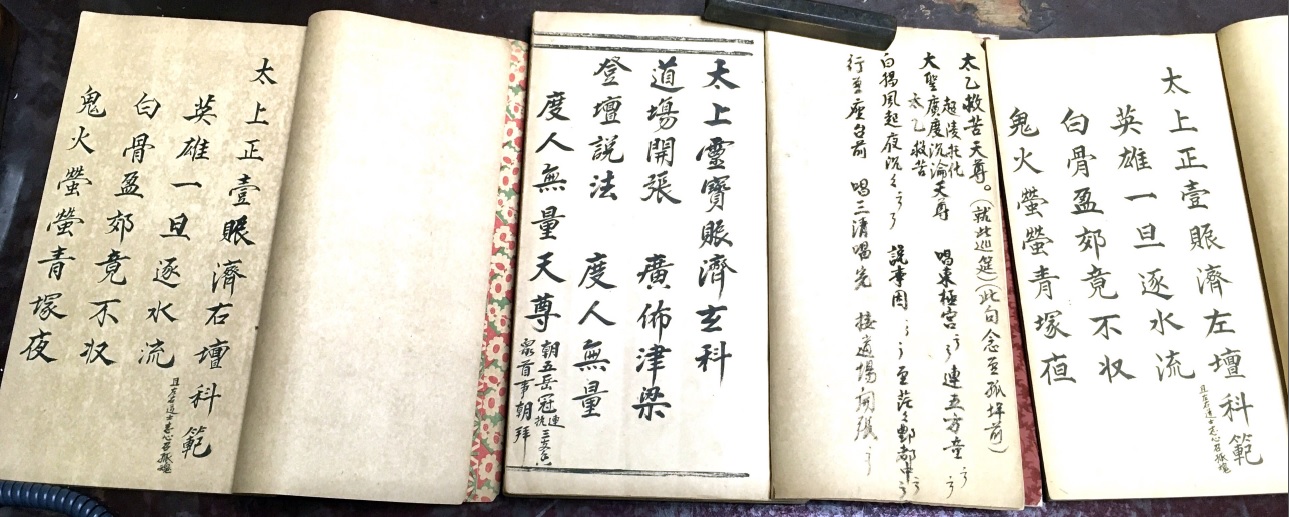 太上正壹賑濟右壇科範
英雄一旦逐水流
白骨盈郊竟不収
鬼火螢螢青塚夜
太上靈寶賑濟玄科
道塲開張 廣佈津梁
登壇説法 度人無量
度人無量天尊
朝五岳冠
衆首事朝拜
太乙救苦天尊。(就此巡筵)(此句念至孤坪前)
超陵托化
大聖廣度沉淪天尊 唱東極宮 連五方童
太乙救苦
白楊風起夜沉々 説事因 至茫々酆都中
行至座台前 唱三清唱完 接道場開張
太上正壹賑濟左壇科範
英雄一旦逐水流
白骨盈郊竟不収
鬼火螢螢青塚夜